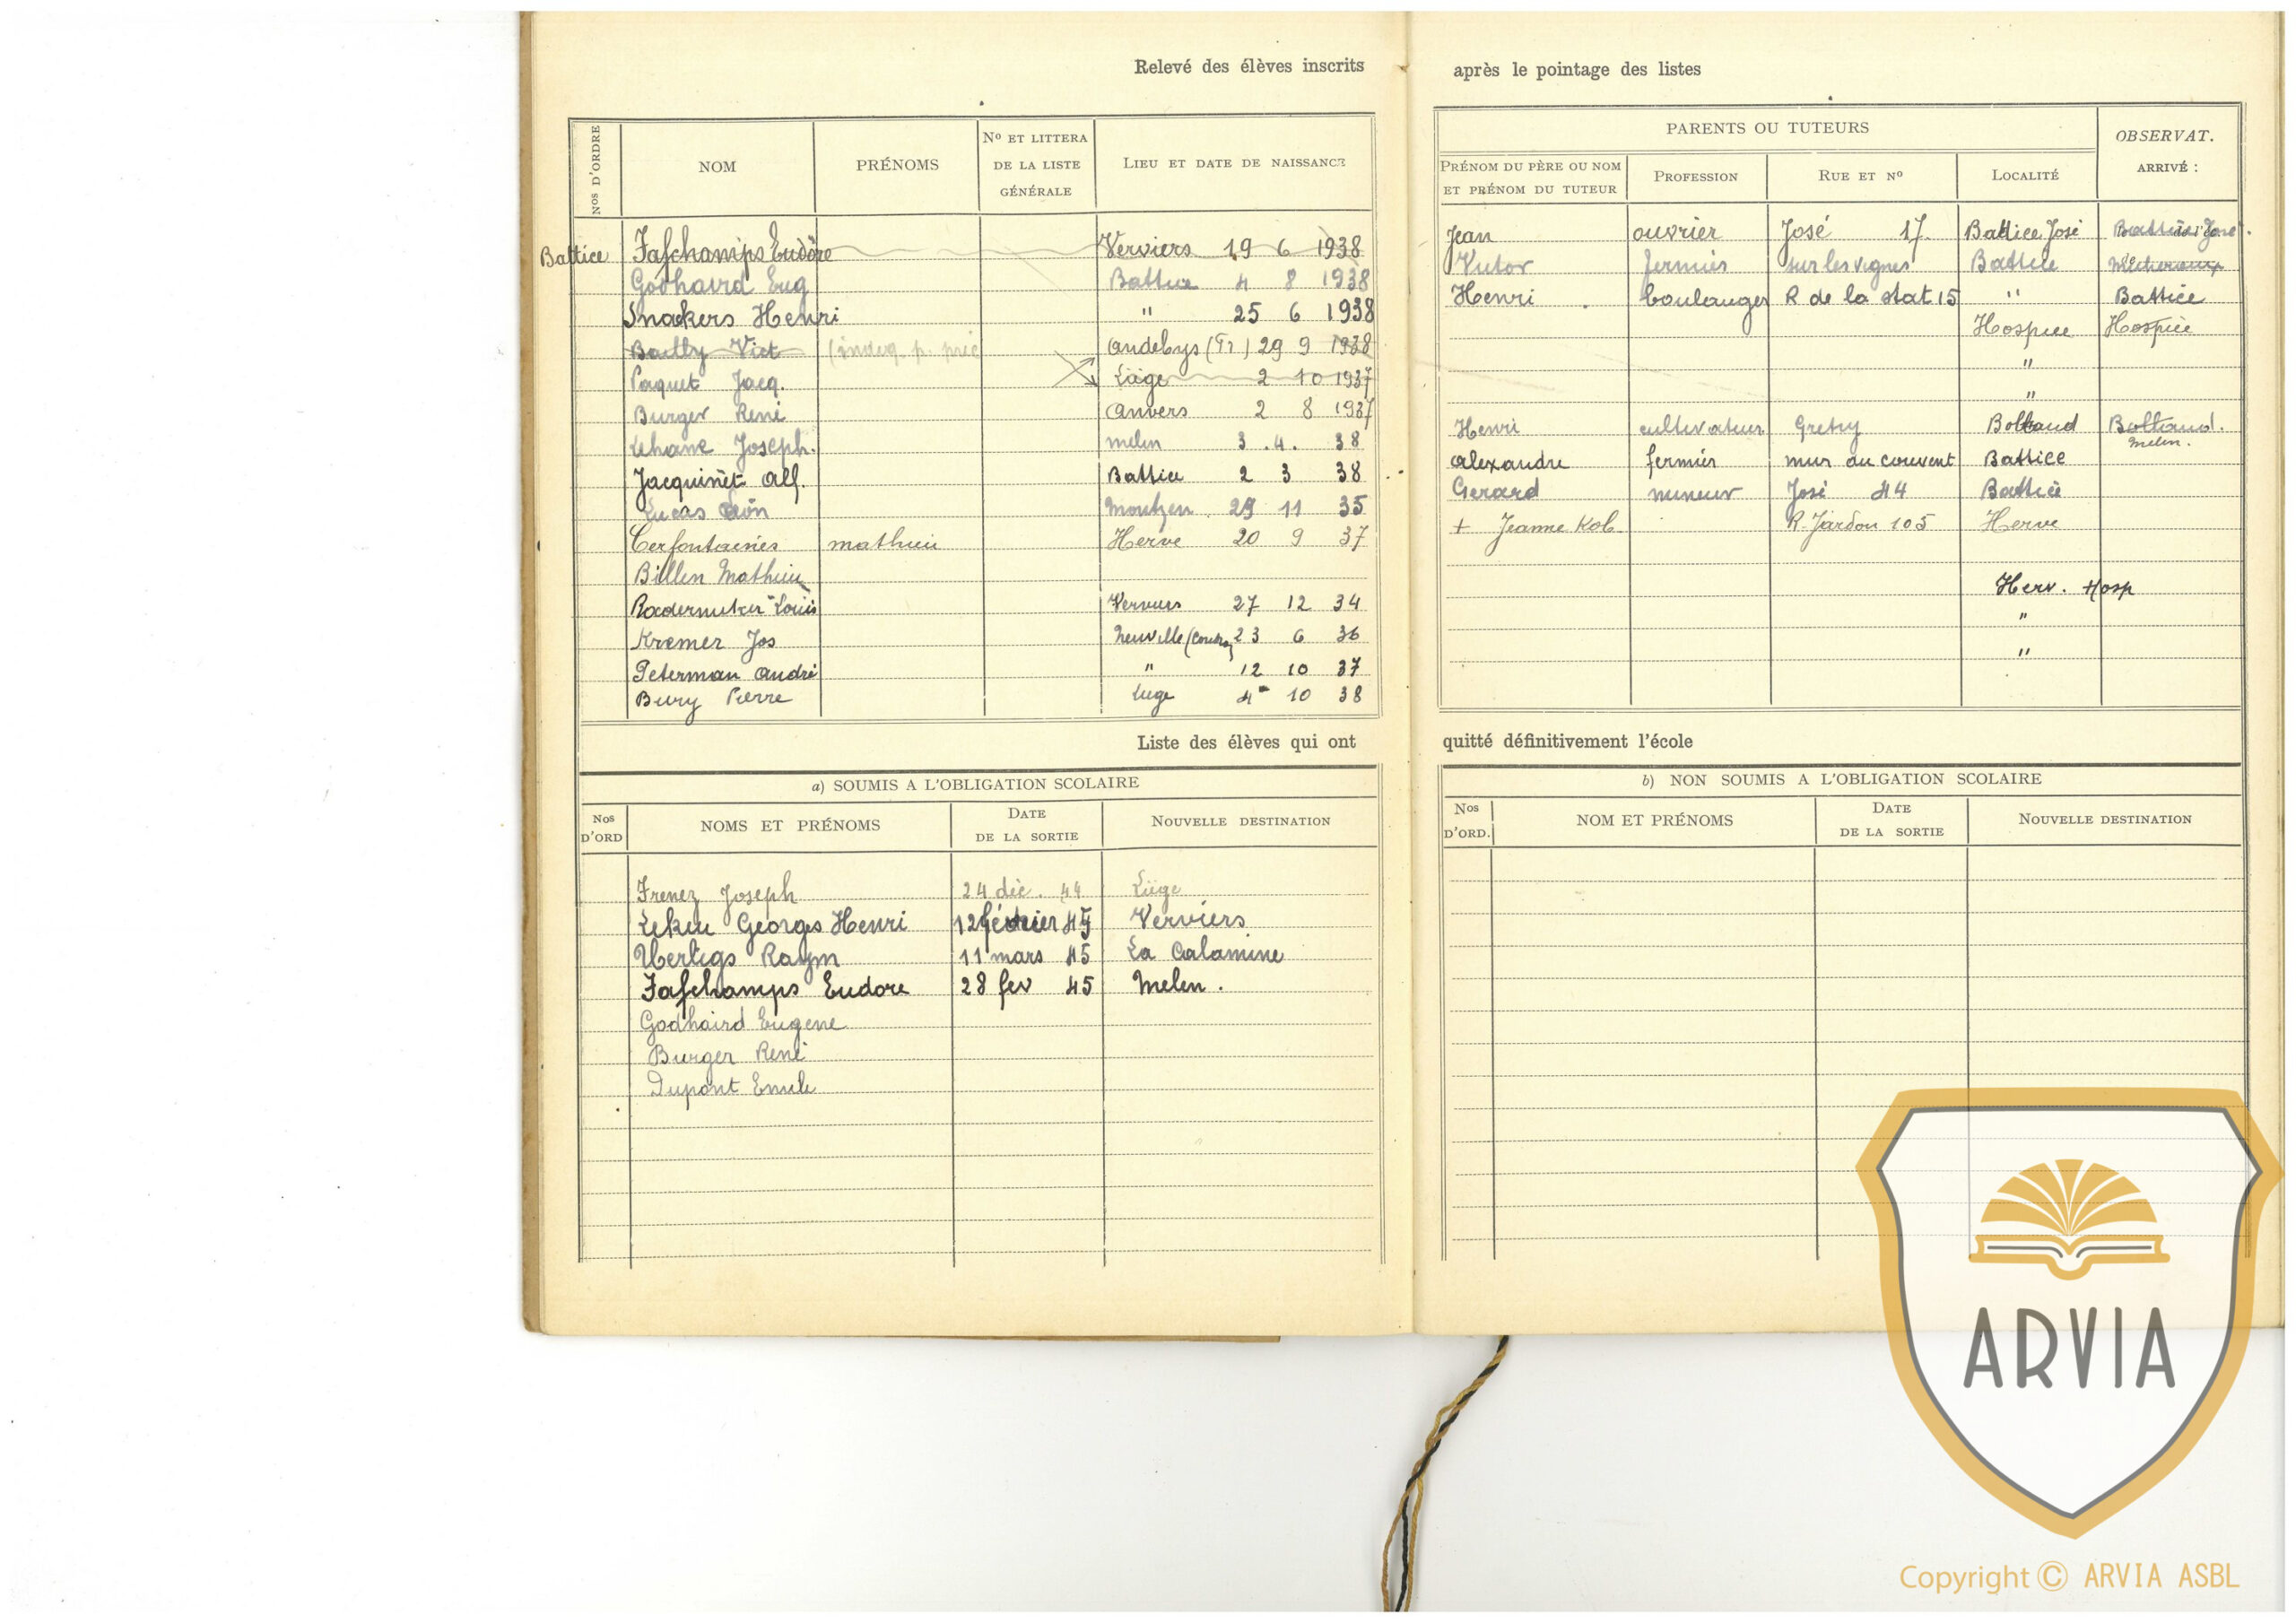 Relevé des élèves inscrits après le pointage des listes
NOS D'ORDRE NOM PRÉNOMS Nº ET LITTERA DE LA LISTE GÉNÉRALE LIEU ET DATE DE NAISSANCE
PARENTS OU TUTEURS OBSERVAT. ARRIVÉ :
PRÉNOM DU PÈRE OU NOM ET PRÉNOM DU TUTEUR PROFESSION RUE ET Nº LOCALITÉ
Battice Fafchamps Eudore Verviers 19 6 1938 Jean ouvrier José 17. Battice José
Godhaird Eug Battice 4 8 1938 Victor fermier sur les vignes Battice
Snakers Henri " 25 6 1938 Henri boulanger R de la stat 15 " Battice
Bailly Vict Andelys (Fr) 29 9 1938 Hospice Hospice
Paquet Jacq. Liège 2 10 1937 "
Burger René Anvers 2 8 1937 "
Lehane Joseph. Melen 3 . 4. 38 Henri cultivateur Gretry Bolland Bolland. Melen.
Jacquinet Alf. Battice 2 3 38 Alexandre fermier mur du couvent Battice
Lucas Léon Montzen 29 11 35 Gerard mineur José 44 Battice
Cerfontaines Mathieu Herve 20 9 37 + Jeanne Kob. R. Jardon 105 Herve
Billen Mathieu
Radermeker Louis Verviers 27 12 34 Herv. Hosp
Kremer Jos Neuville 23 6 36 "
Peterman André " 12 10 37 "
Bury Pierre Liege 4 10 38
Liste des élèves qui ont quitté définitivement l'école
a) SOUMIS A L'OBLIGATION SCOLAIRE
Nos D'ORD NOMS ET PRÉNOMS DATE DE LA SORTIE NOUVELLE DESTINATION
Frenez Joseph 24 déc. 44 Liège
Lekeu Georges Henri 12 février 45 Verviers
Raym 11 mars 45 La Calamine
Fafchamps Eudore 28 fev 45 Melen.
Godhaird Eugene
Burger René
Dupont Emile
b) NON SOUMIS A L'OBLIGATION SCOLAIRE
Nos D'ORD. NOM ET PRÉNOMS DATE DE LA SORTIE NOUVELLE DESTINATION
ARVIA
Copyright © ARVIA ASBL